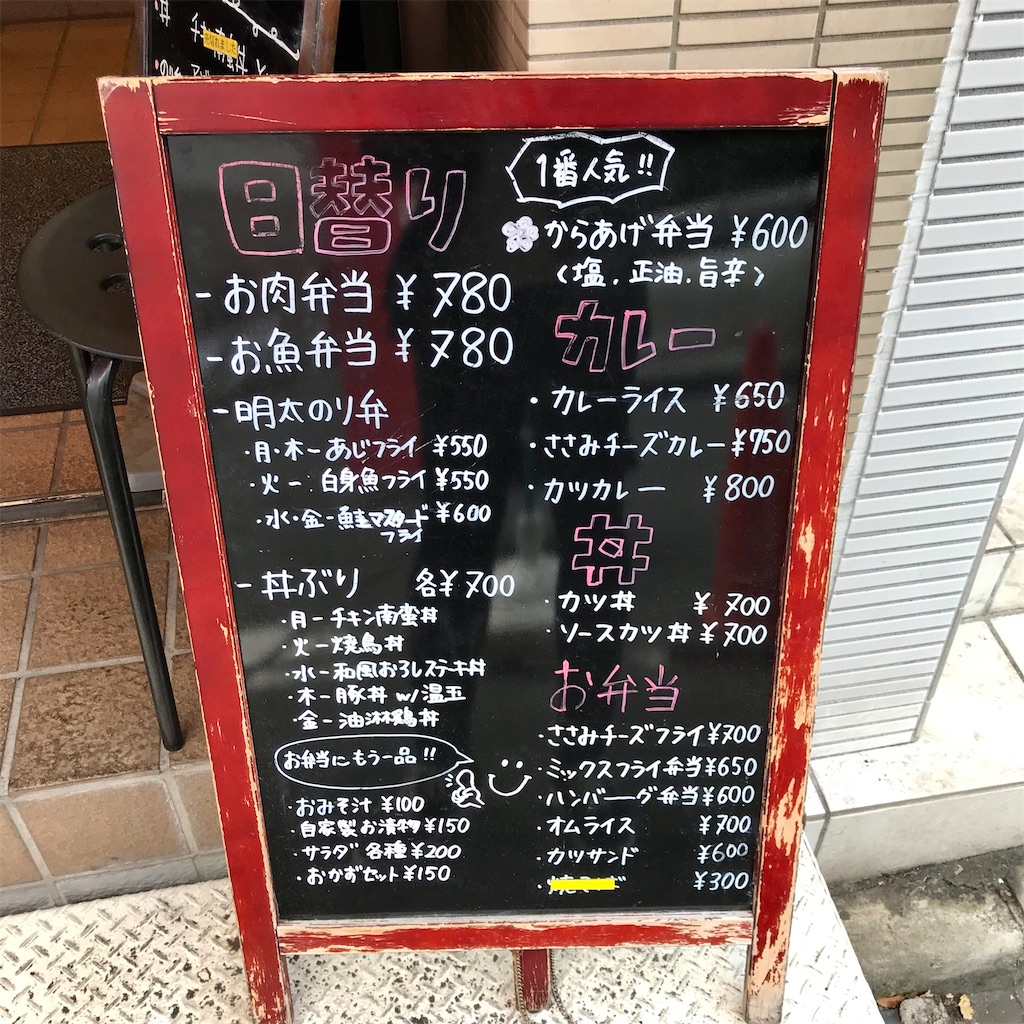 日替り
-お肉弁当 ¥780
-お魚弁当 ¥780
-明太のり弁
・月・木-あじフライ ¥550
・火- 白身魚フライ ¥550
・水・金-鮭マスタード ¥600
フライ
-丼ぶり 各¥700
・月-チキン南蛮丼
・火-焼鳥丼
・水-和風おろしステーキ丼
・木-豚丼 w/温玉
・金-油淋鶏丼
お弁当にもう一品!!
・おみそ汁 ¥100
・自家製お漬物 ¥150
・サラダ 各種 ¥200
・おかずセット ¥150
1番人気!!
からあげ弁当 ¥600
(塩.正油.旨辛)
カレー
・カレーライス ¥650
・ささみチーズカレー ¥750
・カツカレー ¥800
丼
・カツ丼 ¥700
・ソースカツ丼 ¥700
お弁当
・ささみチーズフライ ¥700
・ミックスフライ弁当 ¥650
・ハンバーグ弁当 ¥600
・オムライス ¥700
・カツサンド ¥600
¥300